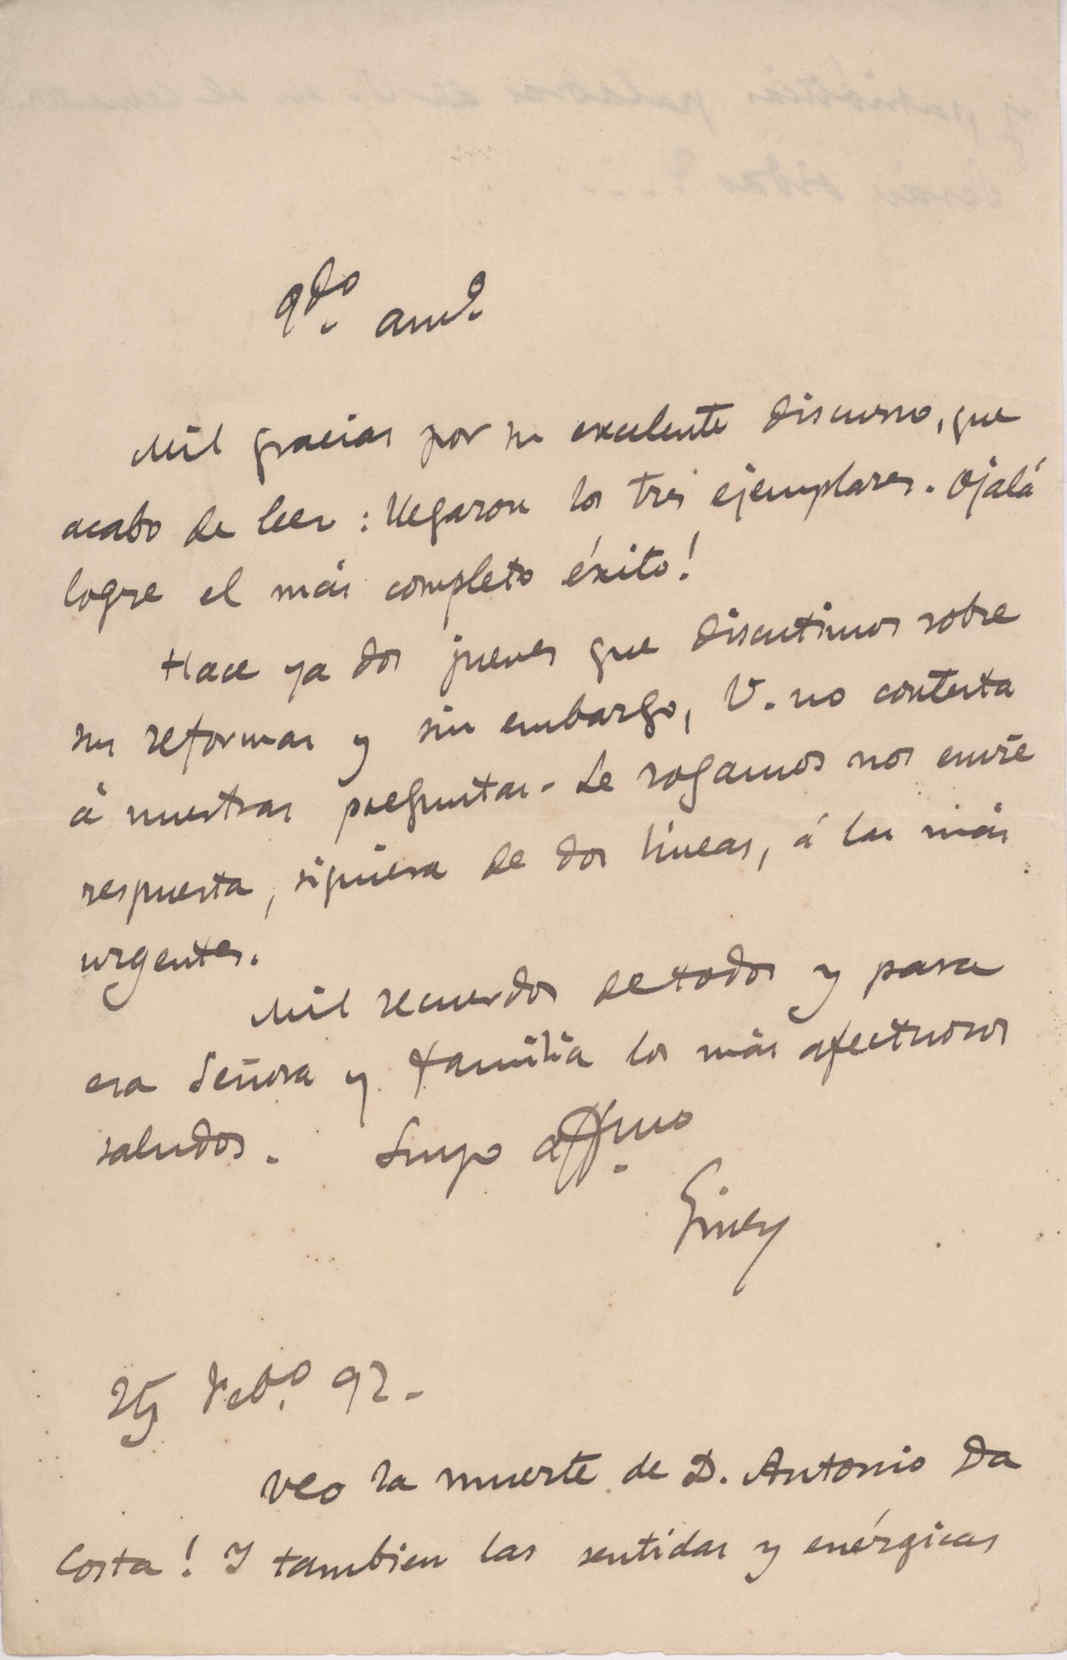 qdo. amo.
Mil gracias por su excelente discurso, que
acabo de leer: llegaron los tres ejemplares. Ojalá
logre el más completo éxito!
Hace ya dos jueves que discutimos sobre
sus reformas y sin embargo, V. no contesta
á nuestras preguntas. Le rogamos nos envíe
respuesta, siquiera de dos líneas, á las más
urgentes.
Mil recuerdos de todos y para
esa Señora y familia los más afectuosos
saludos. Suyo affmo.
Giner
25 Febo. 92.
Veo la muerte de D. Antonio Da
Costa! Y tambien las sentidas y enérgicas